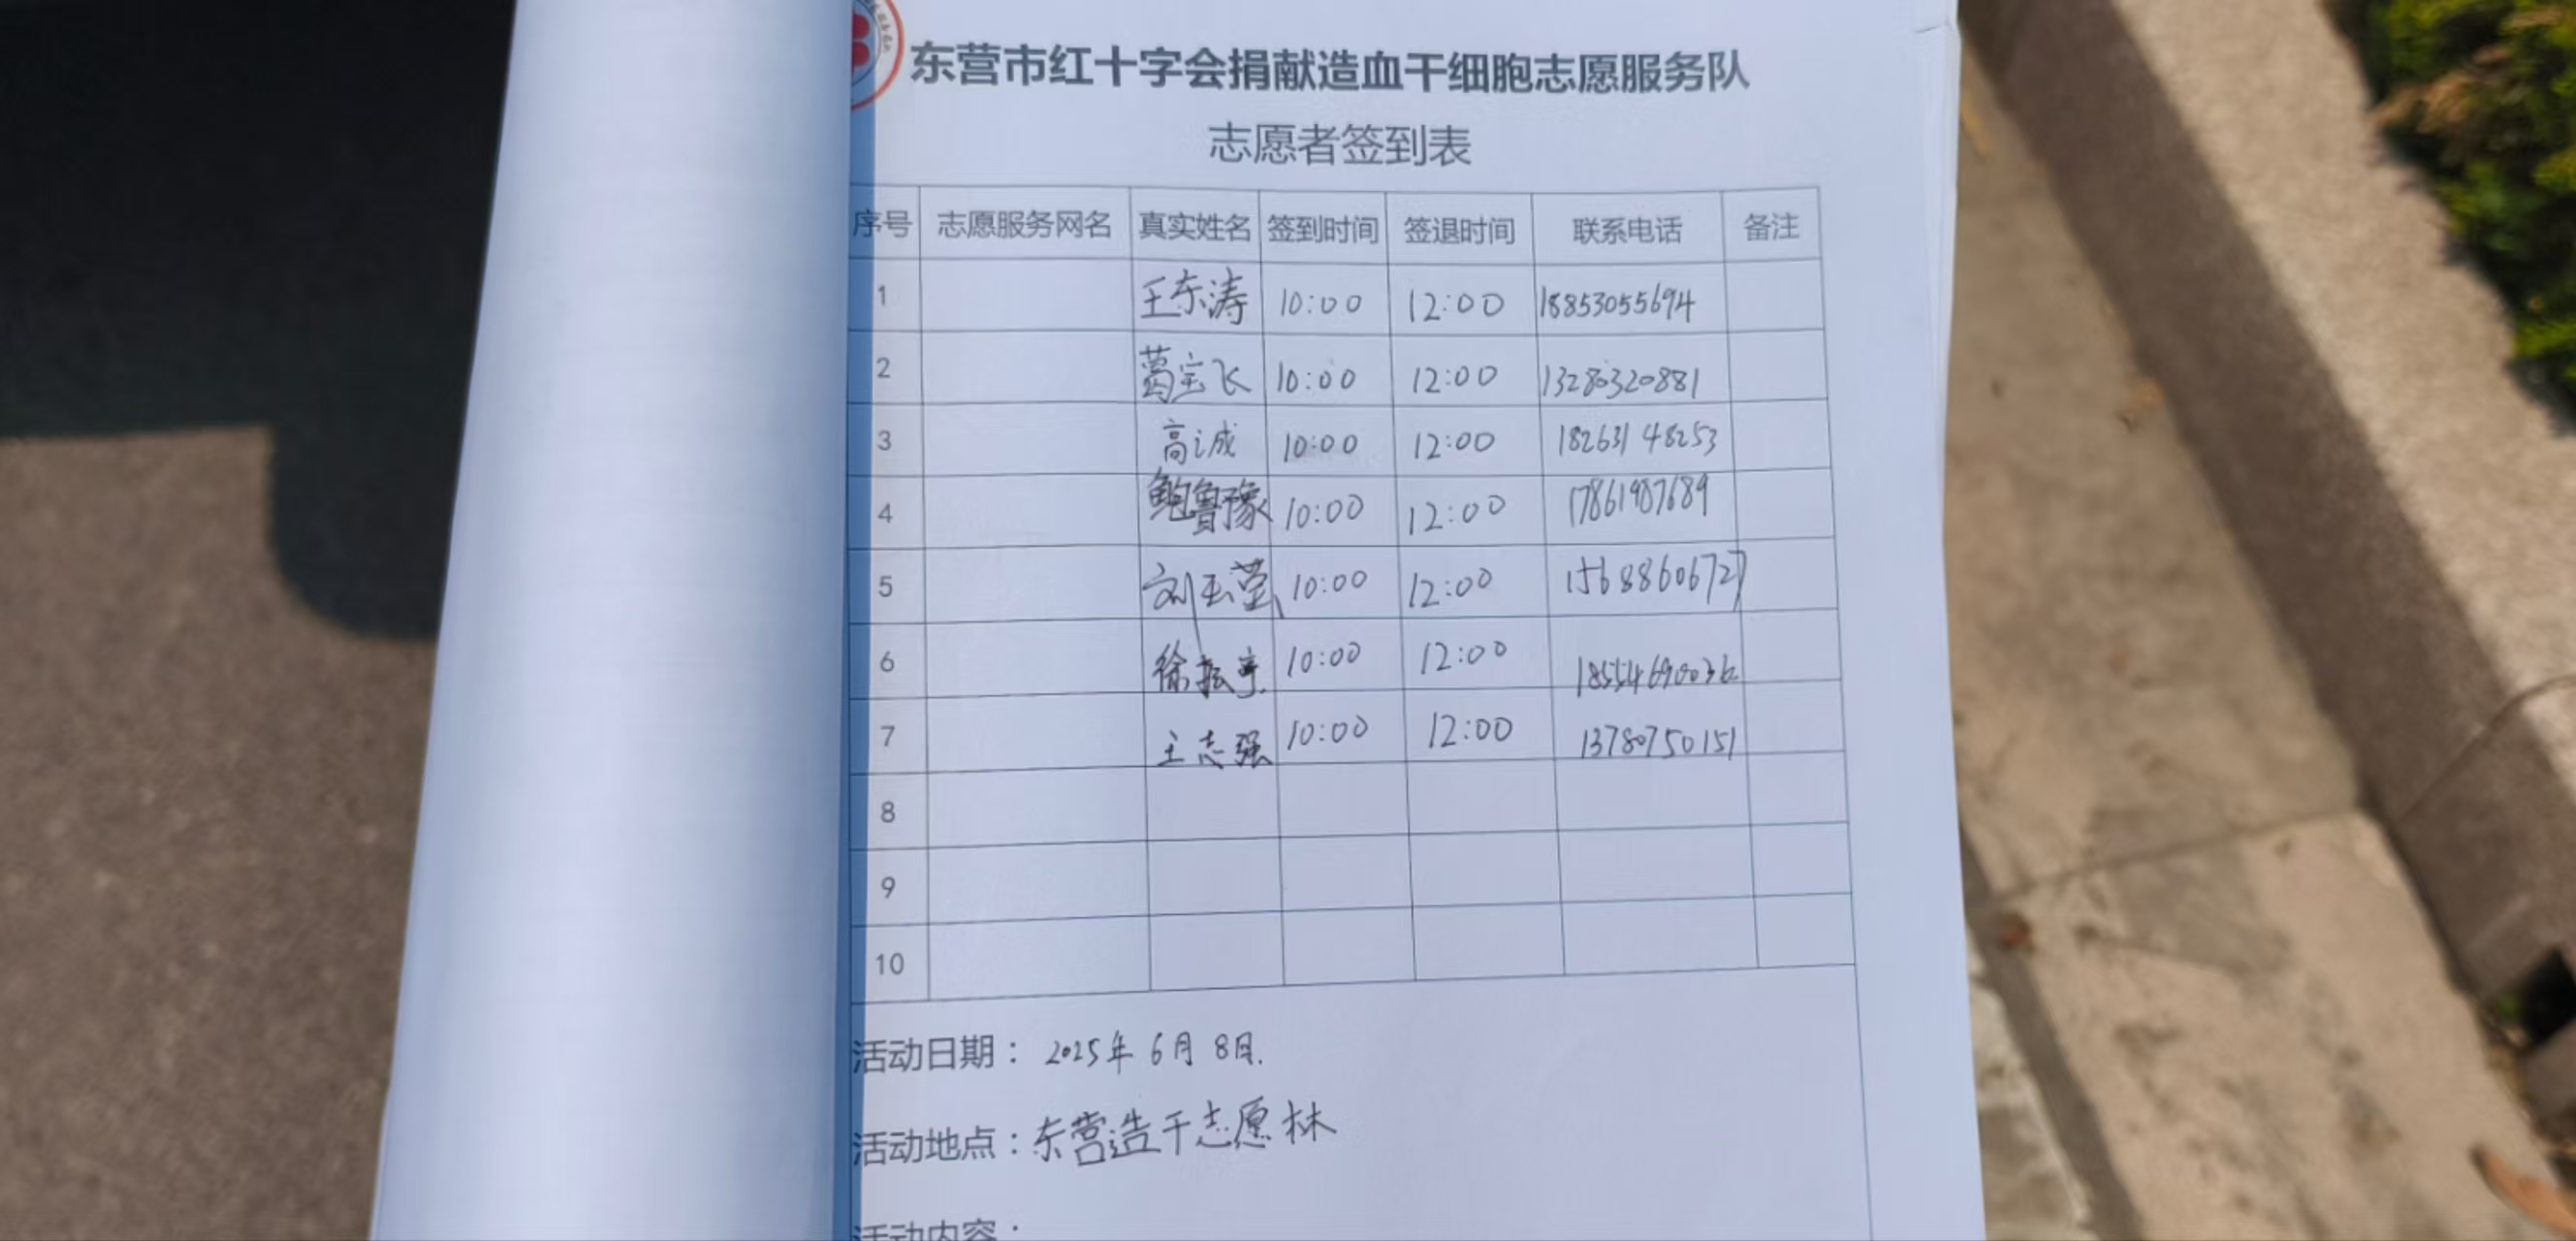 东营市红十字会捐献造血干细胞志愿服务队
志愿者签到表
序号 志愿服务网名 真实姓名 签到时间 签退时间 联系电话 备注
1 王东涛 10:00 12:00 18853055694
2 葛宝飞 10:00 12:00 13280320881
3 高诚 10:00 12:00 18263148253
4 鲍鲁豫 10:00 12:00 17861987689
5 刘玉莹 10:00 12:00 15688606727
6 徐振亭 10:00 12:00
7 王志强 10:00 12:00 13780750151
8
9
10
活动日期： 2025年6月8日.
活动地点：东营造干志愿林
活动内容：